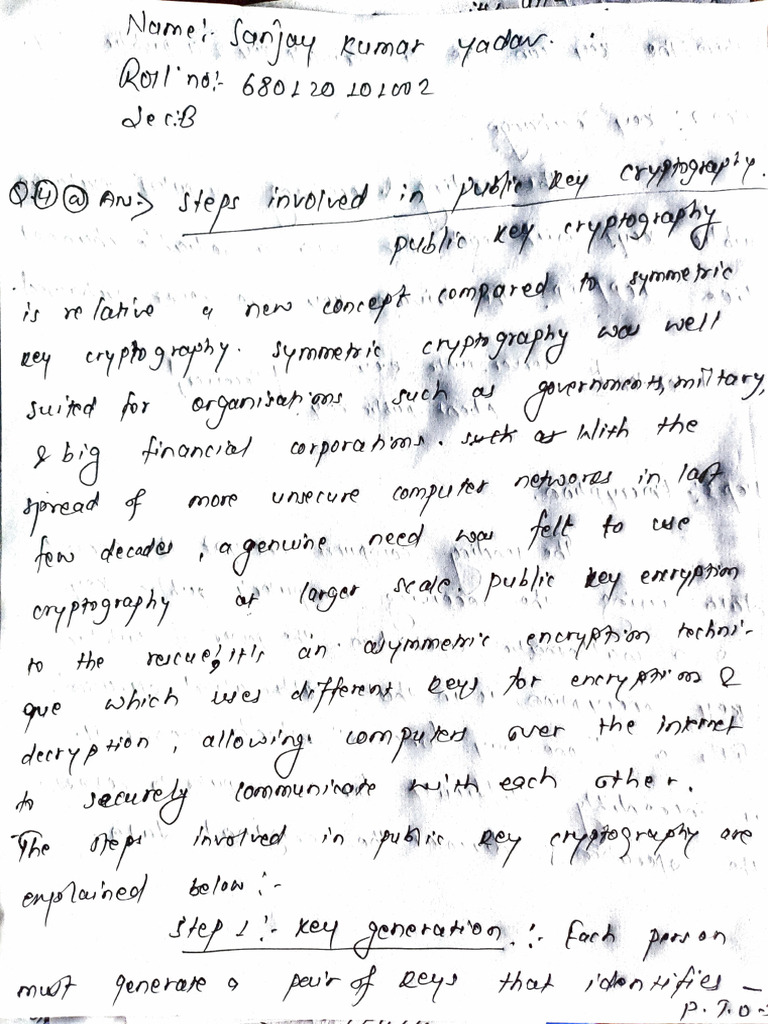 Name:- Sanjay Kumar Yadav.
Roll no:- 680120101002
Sec:B
Q.4 a Ans:> steps involved in public key cryptography.
public key cryptography
is relative a new concept compared to symmetric
key cryptography. symmetric cryptography was well
suited for organisations such as governments, military,
& big financial corporations. such as With the
spread of more unsecure computer networks in last
few decades, a genuine need was felt to use
cryptography at larger scale. public key encryption
to the rescue! it's an asymmetric encryption techni-
que which uses different keys for encryption &
decryption, allowing computers over the internet
to securely communicate with each other.
The steps involved in public key cryptography are
explained below:-
Step 1:- Key generation.:- Each person
must generate a pair of keys that identifies -
P.T.O.